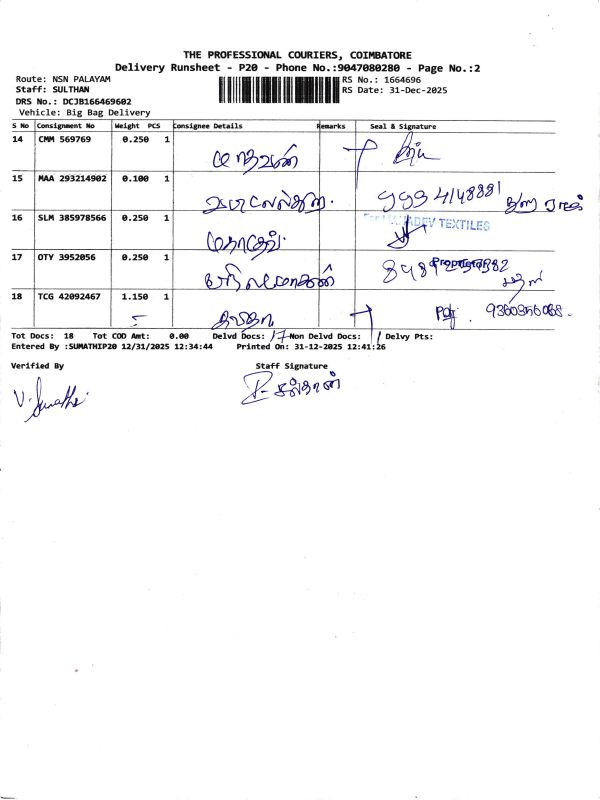 THE PROFESSIONAL COURIERS, COIMBATORE
Delivery Runsheet - P20 - Phone No.:9047080280 - Page No.:2
Route: NSN PALAYAM
RS No.: 1664696
Staff: SULTHAN
RS Date: 31-Dec-2025
DRS No.: DCJB166469602
Vehicle: Big Bag Delivery
S No Consignment No Weight PCS Consignee Details Remarks Seal & Signature
14 CMM 569769 0.250 1
15 MAA 293214902 0.100 1
16 SLM 385978566 0.250 1 மகாதேவ் TEXTILES
17 OTY 3952056 0.250 1
18 TCG 42092467 1.150 1 கவிதா 9360356088
Tot Docs: 18 Tot COD Amt: 0.00 Delvd Docs: 17 Non Delvd Docs: 1 Delvy Pts:
Entered By :SUMATHIP20 12/31/2025 12:34:44 Printed On: 31-12-2025 12:41:26
Verified By Staff Signature
V. Sumathi சுல்தான்